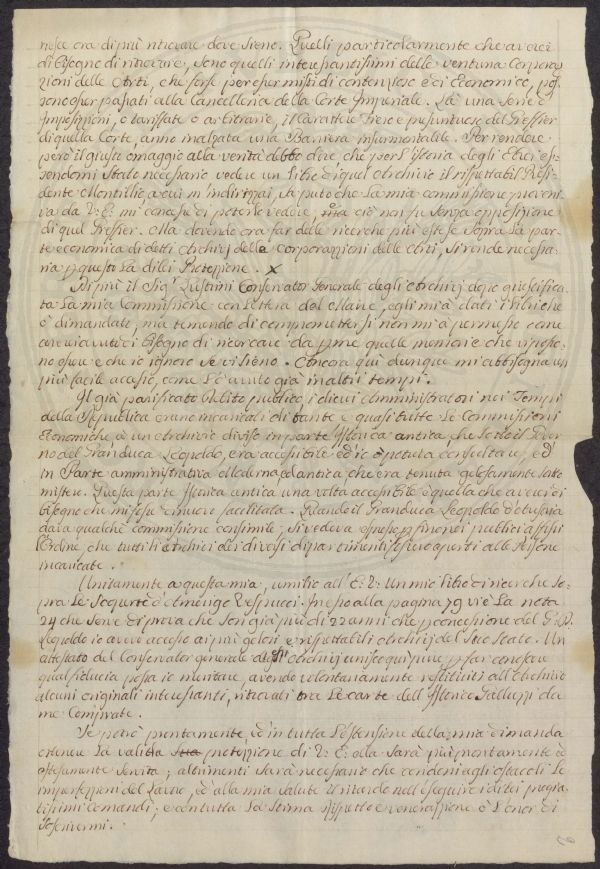 nesce ora di più ritrovare dove sieno. Quelli particolarmente che averei
di bisogno di ritrovare, sono quelli interessantissimi delle ventuna Corporaz
zioni delle Arti, che forse per esser misti di contenzioso e di Economico, pos
sono esser passati alla Cancelleria della Corte Imperiale. Là una serie d'
Imposizioni, o tariffate o arbitrarie, il carattere fiero e presuntuoso del Greffier
di quella Corte, anno inalzata una Barriera insormontabile. Per rendere
però il giusto omaggio alla verità debbo dire, che per l'istoria degli Ebrei es-
sendomi stato necessario vedere un Libro di quel Archivio il rispettabil Presi-
dente Montiglio a cui m'indirizzai, saputo che la mia commissione proveni-
va da V: E: mi concesse di poterlo vedere, ma ciò non fu senza opposizione
di quel Grefier. Ma dovendo ora far delle ricerche più estese sopra la par-
te economica di detti Archivj delle Corporazzioni delle Arti, si rende necessa-
ria p questo la di lei Protezzione. x
Di più il Sigr. Lustrini Conservator Generale degli Archivj dopo giustifica-
ta la mia Commissione con Lettera del Maire, egli mi à dati i Libri che
ò dimandato, ma temendo di compromettersi non mi à permesso come
arei avuto di bisogno di ricercare da p me quelle memorie che vi posso-
no essere e che io ignoro se vi sieno. Ancora quì dunque mi abbisogna un
più facile accesso, come l'ò avuto già in altri tempi.
Il già panificato Debito publico, i di cui Amministratori nei Tempi
della Republica erano incaricati di tante e quasi tutte le Commissioni
Economiche à un archivio diviso in parte Istorica antica che sotto il Gover
no del Granduca Leopoldo, era accessibile ed io ò potuta consultare, ed
in Parte amministrativa Moderna, ed antica, che era tenuta gelosamente sotto
mistero. Questa parte Istorica antica una volta accessibile è quella che averei di
bisogno che mi fosse di nuovo facilitata. Quando il Granduca Leopoldo d'Austria
dava qualche commissione consimile, si vedeva espresso p fino nei publici affissi
l'Ordine, che tutti li Archivi dei diversi dipartimenti fossero aperti alle Persone
incaricate.
Unitamente a questa mia, umilio all'E: V: Un mio Libro di ricerche so-
pra le scoperte d'Amerigo Vespucci. In esso alla pagina 79 vi è la nota
24 che serve di prova che son già più di 22 anni che p concessione del G: D:
Leopoldo io avevo accesso ai più gelosi e rispettabili Archivj del suo stato. Un
attestato del Conservator generale degli Archivj unisco quì pure p far conoscere
qual fiducia possa io meritare, avendo volontariamente restituiti all'Archivio
alcuni originali interessanti, ritrovati tra le carte dell'Istorico Galluzzi da
me comprate.
Se potrò prontamente, ed in tutta l'estensione della mia dimanda
ottenere la valida protezzione di V: E: ella sarà più prontamente ed
estesamente servita; altrimenti sarà necessario che condoni agli ostacoli le
imperfezzioni del Lavoro, ed alla mia salute il ritardo nell'eseguire i di lei pregia-
tissimi comandi, e con tutta la stima rispetto e venerazzione ò l'onor di
soscrivermi.